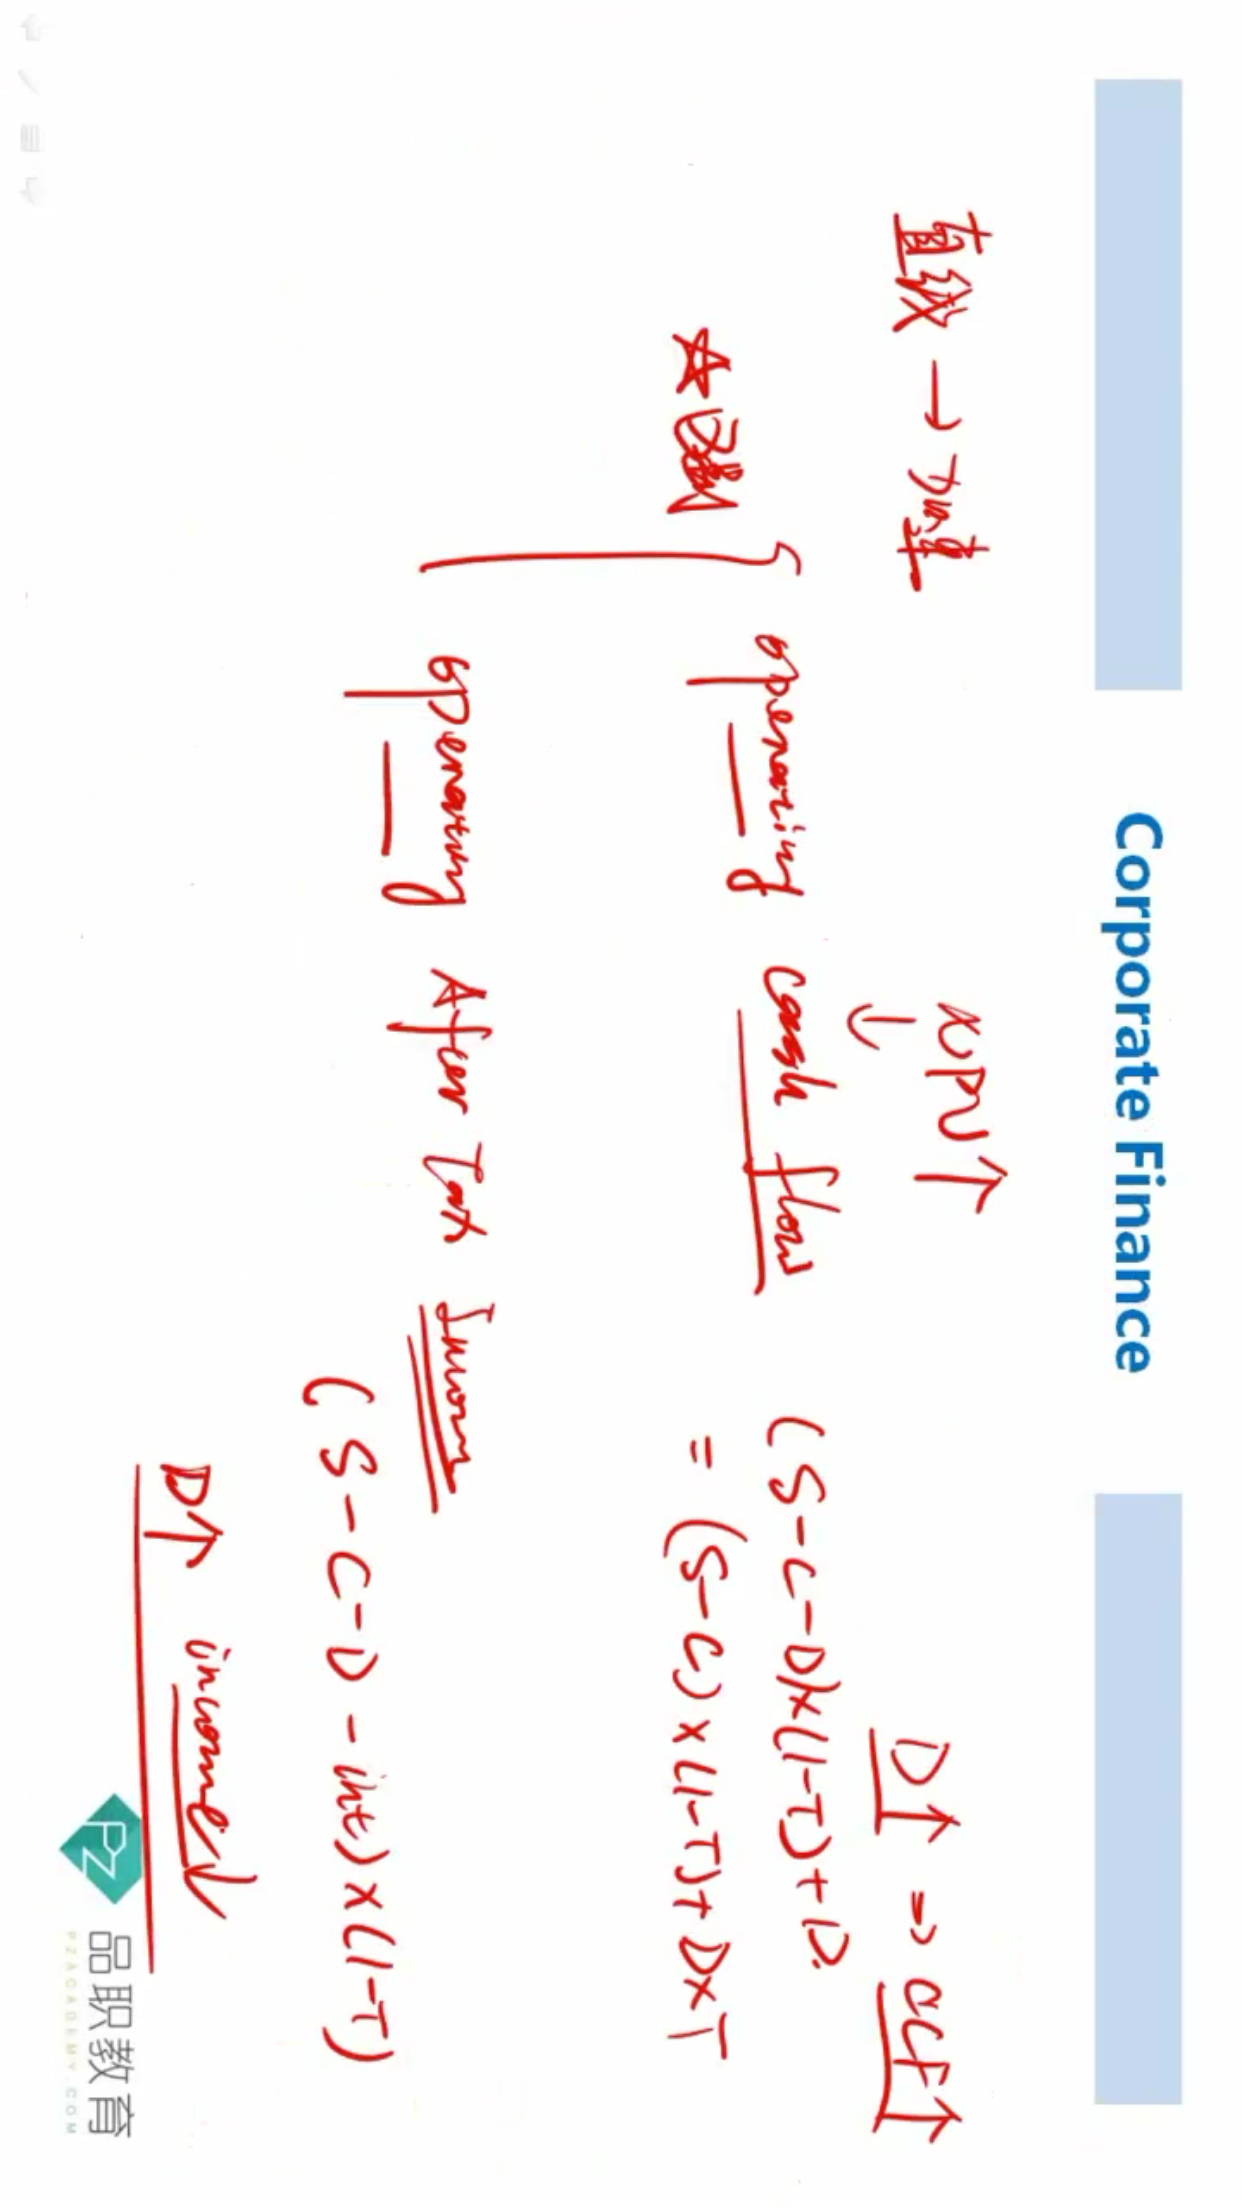 Corporate Finance
直线 → 加速
NPV↑
↓
D↑ ⇒ OCF↑
☆ 区别 {
operating cash flow (S-C-D)×(1-T)+D.
= (S-C)×(1-T)+D×T
operating After Tax Income
(S-C-D-int)×(1-T)
D↑ income↓
PZ 品职教育
PZACADEMY.COM